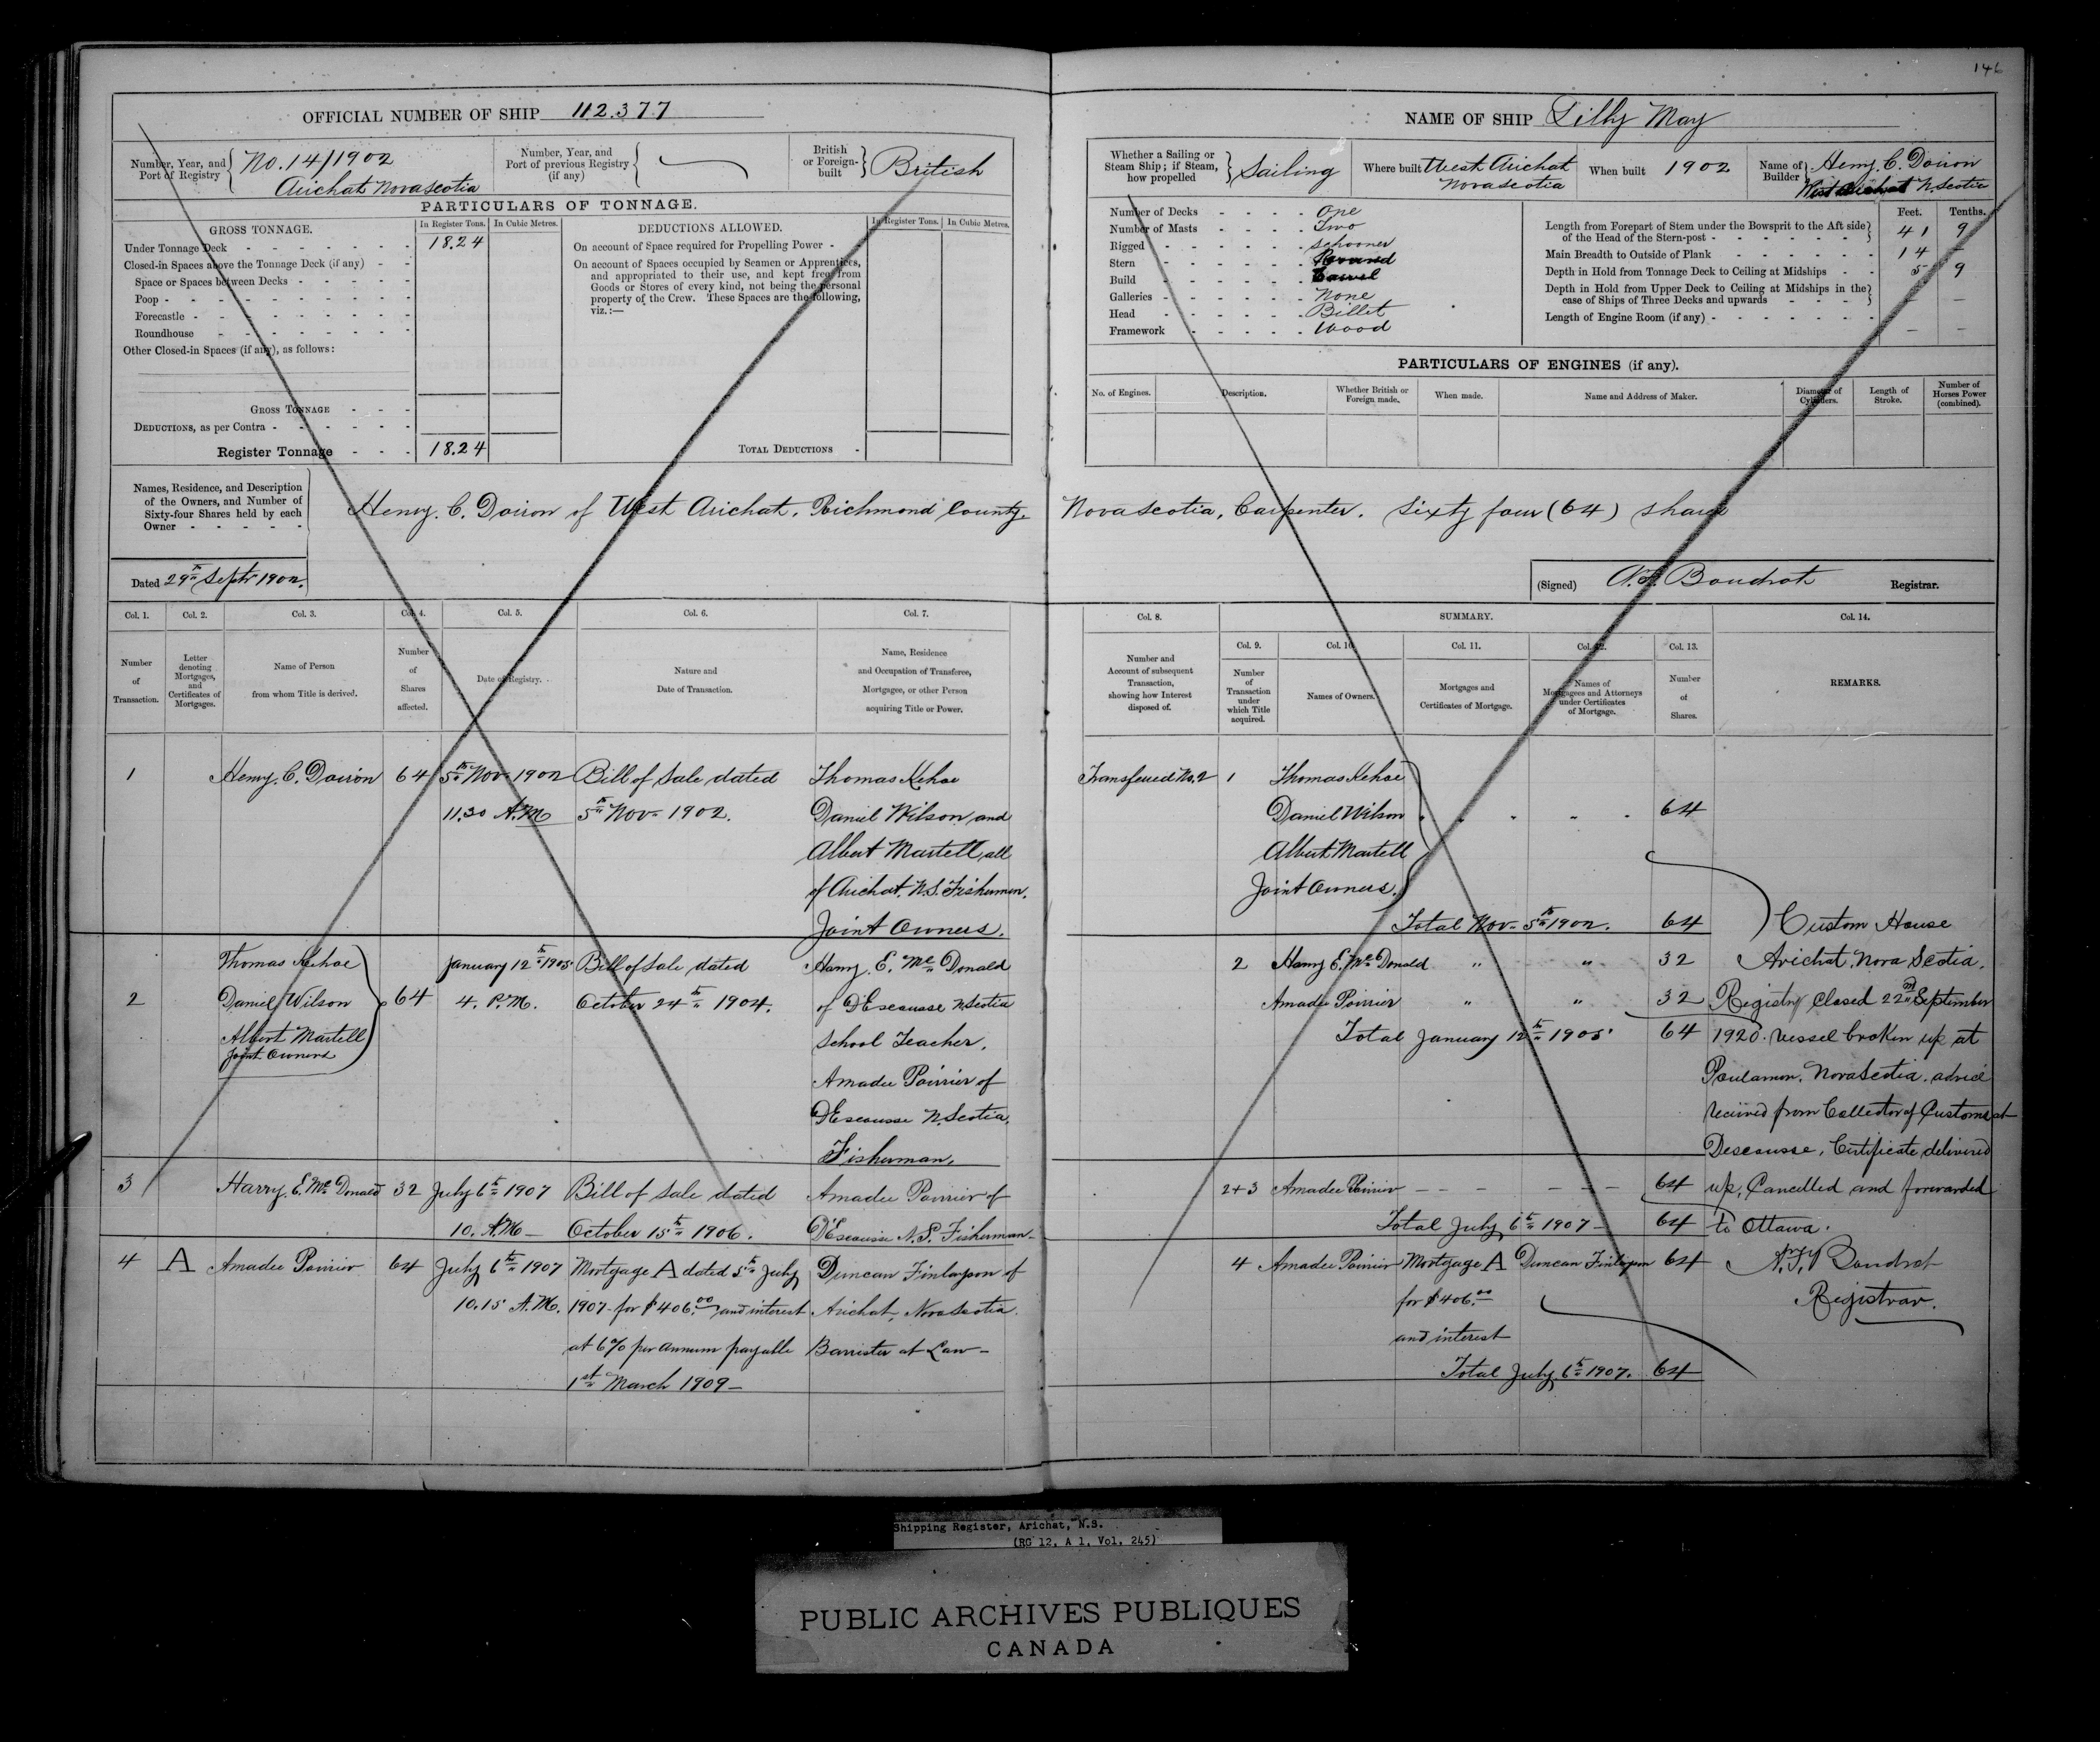 146
OFFICIAL NUMBER OF SHIP 112.377
Number, Year, and Port of Registry No. 14/1902
Arichat Nova Scotia
Number, Year, and Port of previous Registry (if any)
British or Foreign-built British
PARTICULARS OF TONNAGE.
GROSS TONNAGE. In Register Tons. In Cubic Metres.
Under Tonnage Deck 18.24
Closed-in Spaces above the Tonnage Deck (if any)
Space or Spaces between Decks
Poop
Forecastle
Roundhouse
Other Closed-in Spaces (if any), as follows:
GROSS TONNAGE
DEDUCTIONS, as per Contra
Register Tonnage 18.24
DEDUCTIONS ALLOWED. In Register Tons. In Cubic Metres.
On account of Space required for Propelling Power
On account of Spaces occupied by Seamen or Apprentices,
and appropriated to their use, and kept free from
Goods or Stores of every kind, not being the personal
property of the Crew. These Spaces are the following,
viz.:—
TOTAL DEDUCTIONS
NAME OF SHIP Lilly May
Whether a Sailing or Steam Ship; if Steam, how propelled Sailing
Where built West Arichat
Nova Scotia
When built 1902
Name of Builder Henry C. Doiron
West Arichat N. Scotia
Number of Decks One
Number of Masts Two
Rigged Schooner
Stern Round
Build Carvel
Galleries None
Head Billet
Framework Wood
Feet. Tenths.
Length from Forepart of Stem under the Bowsprit to the Aft side
of the Head of the Stern-post 41 9
Main Breadth to Outside of Plank 14 –
Depth in Hold from Tonnage Deck to Ceiling at Midships 5 9
Depth in Hold from Upper Deck to Ceiling at Midships in the
case of Ships of Three Decks and upwards – –
Length of Engine Room (if any) – –
PARTICULARS OF ENGINES (if any).
No. of Engines. Description. Whether British or Foreign made. When made. Name and Address of Maker. Diameter of Cylinders. Length of Stroke. Number of Horses Power (combined).
Names, Residence, and Description
of the Owners, and Number of
Sixty-four Shares held by each
Owner
Henry. C. Doiron of West Arichat. Richmond County Nova Scotia, Carpenter. Sixty four (64) shares
Dated 29th Septr 1902.
(Signed) Boudrot Registrar.
Col. 1. Col. 2. Col. 3. Col. 4. Col. 5. Col. 6. Col. 7.
Number of Transaction.
Letter denoting Mortgages, and Certificates of Mortgages.
Name of Person from whom Title is derived.
Number of Shares affected.
Date of Registry.
Nature and Date of Transaction.
Name, Residence and Occupation of Transferee, Mortgagee, or other Person acquiring Title or Power.
Col. 8. SUMMARY. Col. 14.
Col. 9. Col. 10. Col. 11. Col. 12. Col. 13.
Number and Account of subsequent Transaction, showing how Interest disposed of.
Number of Transaction under which Title acquired.
Names of Owners.
Mortgages and Certificates of Mortgage.
Names of Mortgagees and Attorneys under Certificates of Mortgage.
Number of Shares.
REMARKS.
1 Henry. C. Doiron 64 5th Nov. 1902 Bill of Sale dated Thomas Kehoe
11.30 A.M 5th Nov. 1902. Daniel Wilson and
Albert Martell, all
of Arichat. N.S. Fishermen.
Joint Owners.
2 Thomas Kehoe January 12th 1905 Bill of Sale dated Harry. E. Mc Donald
Daniel Wilson 64 4. P.M. October 24th 1904. of D'Escousse N. Scotia
Albert Martell School Teacher.
Joint Owners Amadee Poirrier of
D'Escousse N. Scotia,
Fisherman.
3 Harry. E. Mc Donald 32 July 6th 1907 Bill of Sale dated Amadee Poirrier of
10. A.M – October 15th 1906. D'Escousse N.S. Fisherman–
4 A Amadee Poirrier 64 July 6th 1907 Mortgage A dated 5th July Duncan Finlayson of
10.15 A.M. 1907 – for $406.00 and interest Arichat, Nova Scotia.
at 6% per annum payable Barrister at Law –
1st March 1909 –
Transferred No. 2 1 Thomas Kehoe
Daniel Wilson 64
Albert Martell
Joint Owners.
Total Nov. 5th 1902. 64
2 Harry E. Mc Donald " " 32
Amadee Poirrier " " 32
Total January 12th 1905 64
2+3 Amadee Poirrier 64
Total July 6th 1907 – 64
4 Amadee Poirrier Mortgage A Duncan Finlayson 64
for $406.00
and interest
Total July 6th 1907. 64
Custom House
Arichat, Nova Scotia.
Registry closed 22nd September
1920. Vessel broken up at
Poulamon. Nova Scotia. advice
received from Collector of Customs at
Descousse, Certificate delivered
up, Cancelled and forwarded
to Ottawa.
Boudrot
Registrar.
Shipping Register, Arichat, N.S.
(RG 12, A 1, Vol. 245)
PUBLIC ARCHIVES PUBLIQUES
CANADA